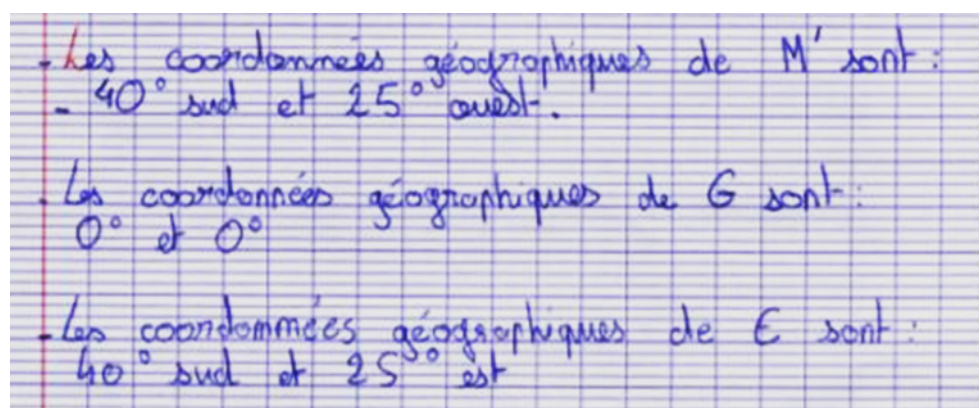 - Les coordonnées géographiques de M' sont :
- 40° sud et 25° ouest.
- Les coordonnées géographiques de G sont :
0° et 0°
- Les coordommées géographiques de E sont :
40° sud et 25° est